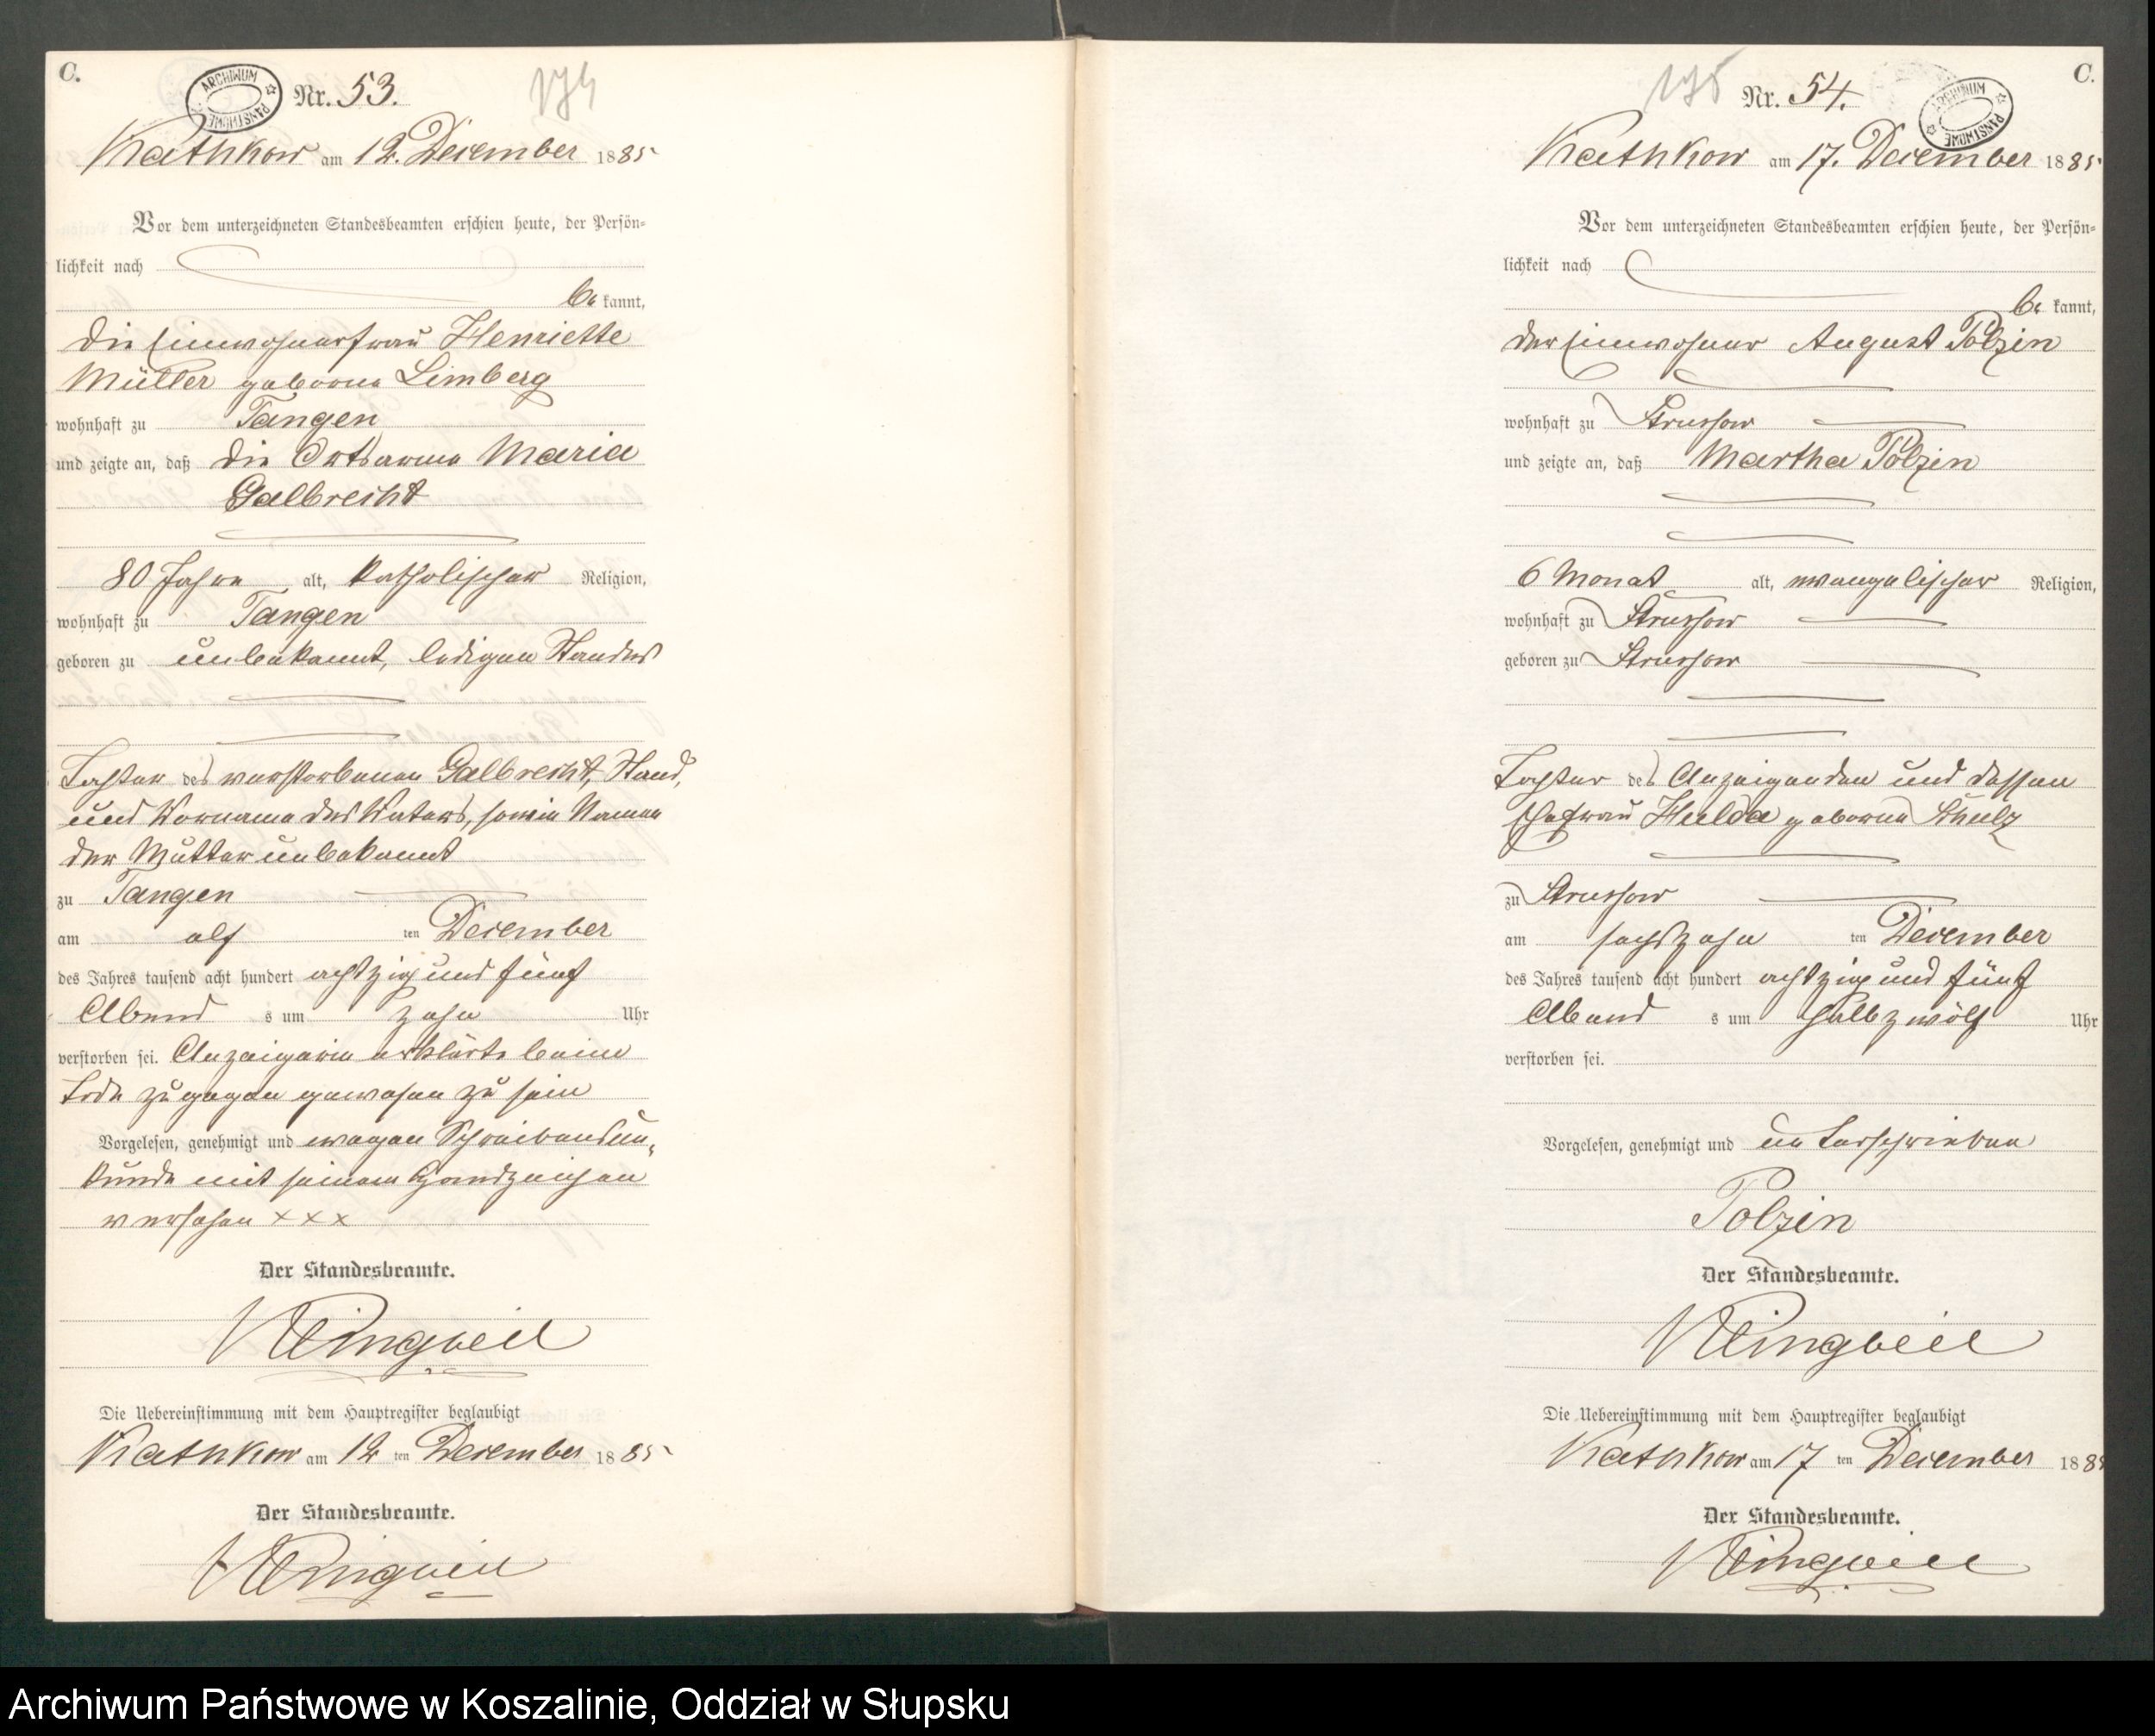 C.
ARCHIWUM PAŃSTWOWE
Nr. 53.
174
Kathkow am 12. December 1885
Vor dem unterzeichneten Standesbeamten erschien heute, der Persön-
lichkeit nach
be kannt,
die Einwohnerfrau Henriette
Müller geborne Limberg
wohnhaft zu Tangen
und zeigte an, daß die Ortsarme Maria
Galbrecht
80 Jahre alt, katholischer Religion,
wohnhaft zu Tangen
geboren zu unbekannt, ledigen Standes
Tochter des verstorbenen Galbrecht, Stand,
und Vorname des Vaters, sowie Namen
der Mutter unbekannt
zu Tangen
am elf ten December
des Jahres tausend acht hundert achtzig und fünf
Abend s um zehn Uhr
verstorben sei. Anzeigerin erklärte beim
Tode zugegen gewesen zu sein
Vorgelesen, genehmigt und wegen Schreibensun-
kunde mit seinem Handzeichen
versehen × × ×
Der Standesbeamte.
Die Uebereinstimmung mit dem Hauptregister beglaubigt
Kathkow am 12 ten December 1885
Der Standesbeamte.
C.
ARCHIWUM PAŃSTWOWE
175
Nr. 54.
Kathkow am 17. December 1885
Vor dem unterzeichneten Standesbeamten erschien heute, der Persön-
lichkeit nach
be kannt,
der Einwohner August Polzin
wohnhaft zu Strussow
und zeigte an, daß Martha Polzin
6 Monat alt, evangelischer Religion,
wohnhaft zu Strussow
geboren zu Strussow
Tochter des Anzeigenden und dessen
Ehefrau Hulda geborne Schulz
zu Strussow
am sechszehn ten December
des Jahres tausend acht hundert achtzig und fünf
Abend s um halb zwölf Uhr
verstorben sei.
Vorgelesen, genehmigt und unterschrieben
Polzin
Der Standesbeamte.
Die Uebereinstimmung mit dem Hauptregister beglaubigt
Kathkow am 17 ten December 1885
Der Standesbeamte.
Archiwum Państwowe w Koszalinie, Oddział w Słupsku